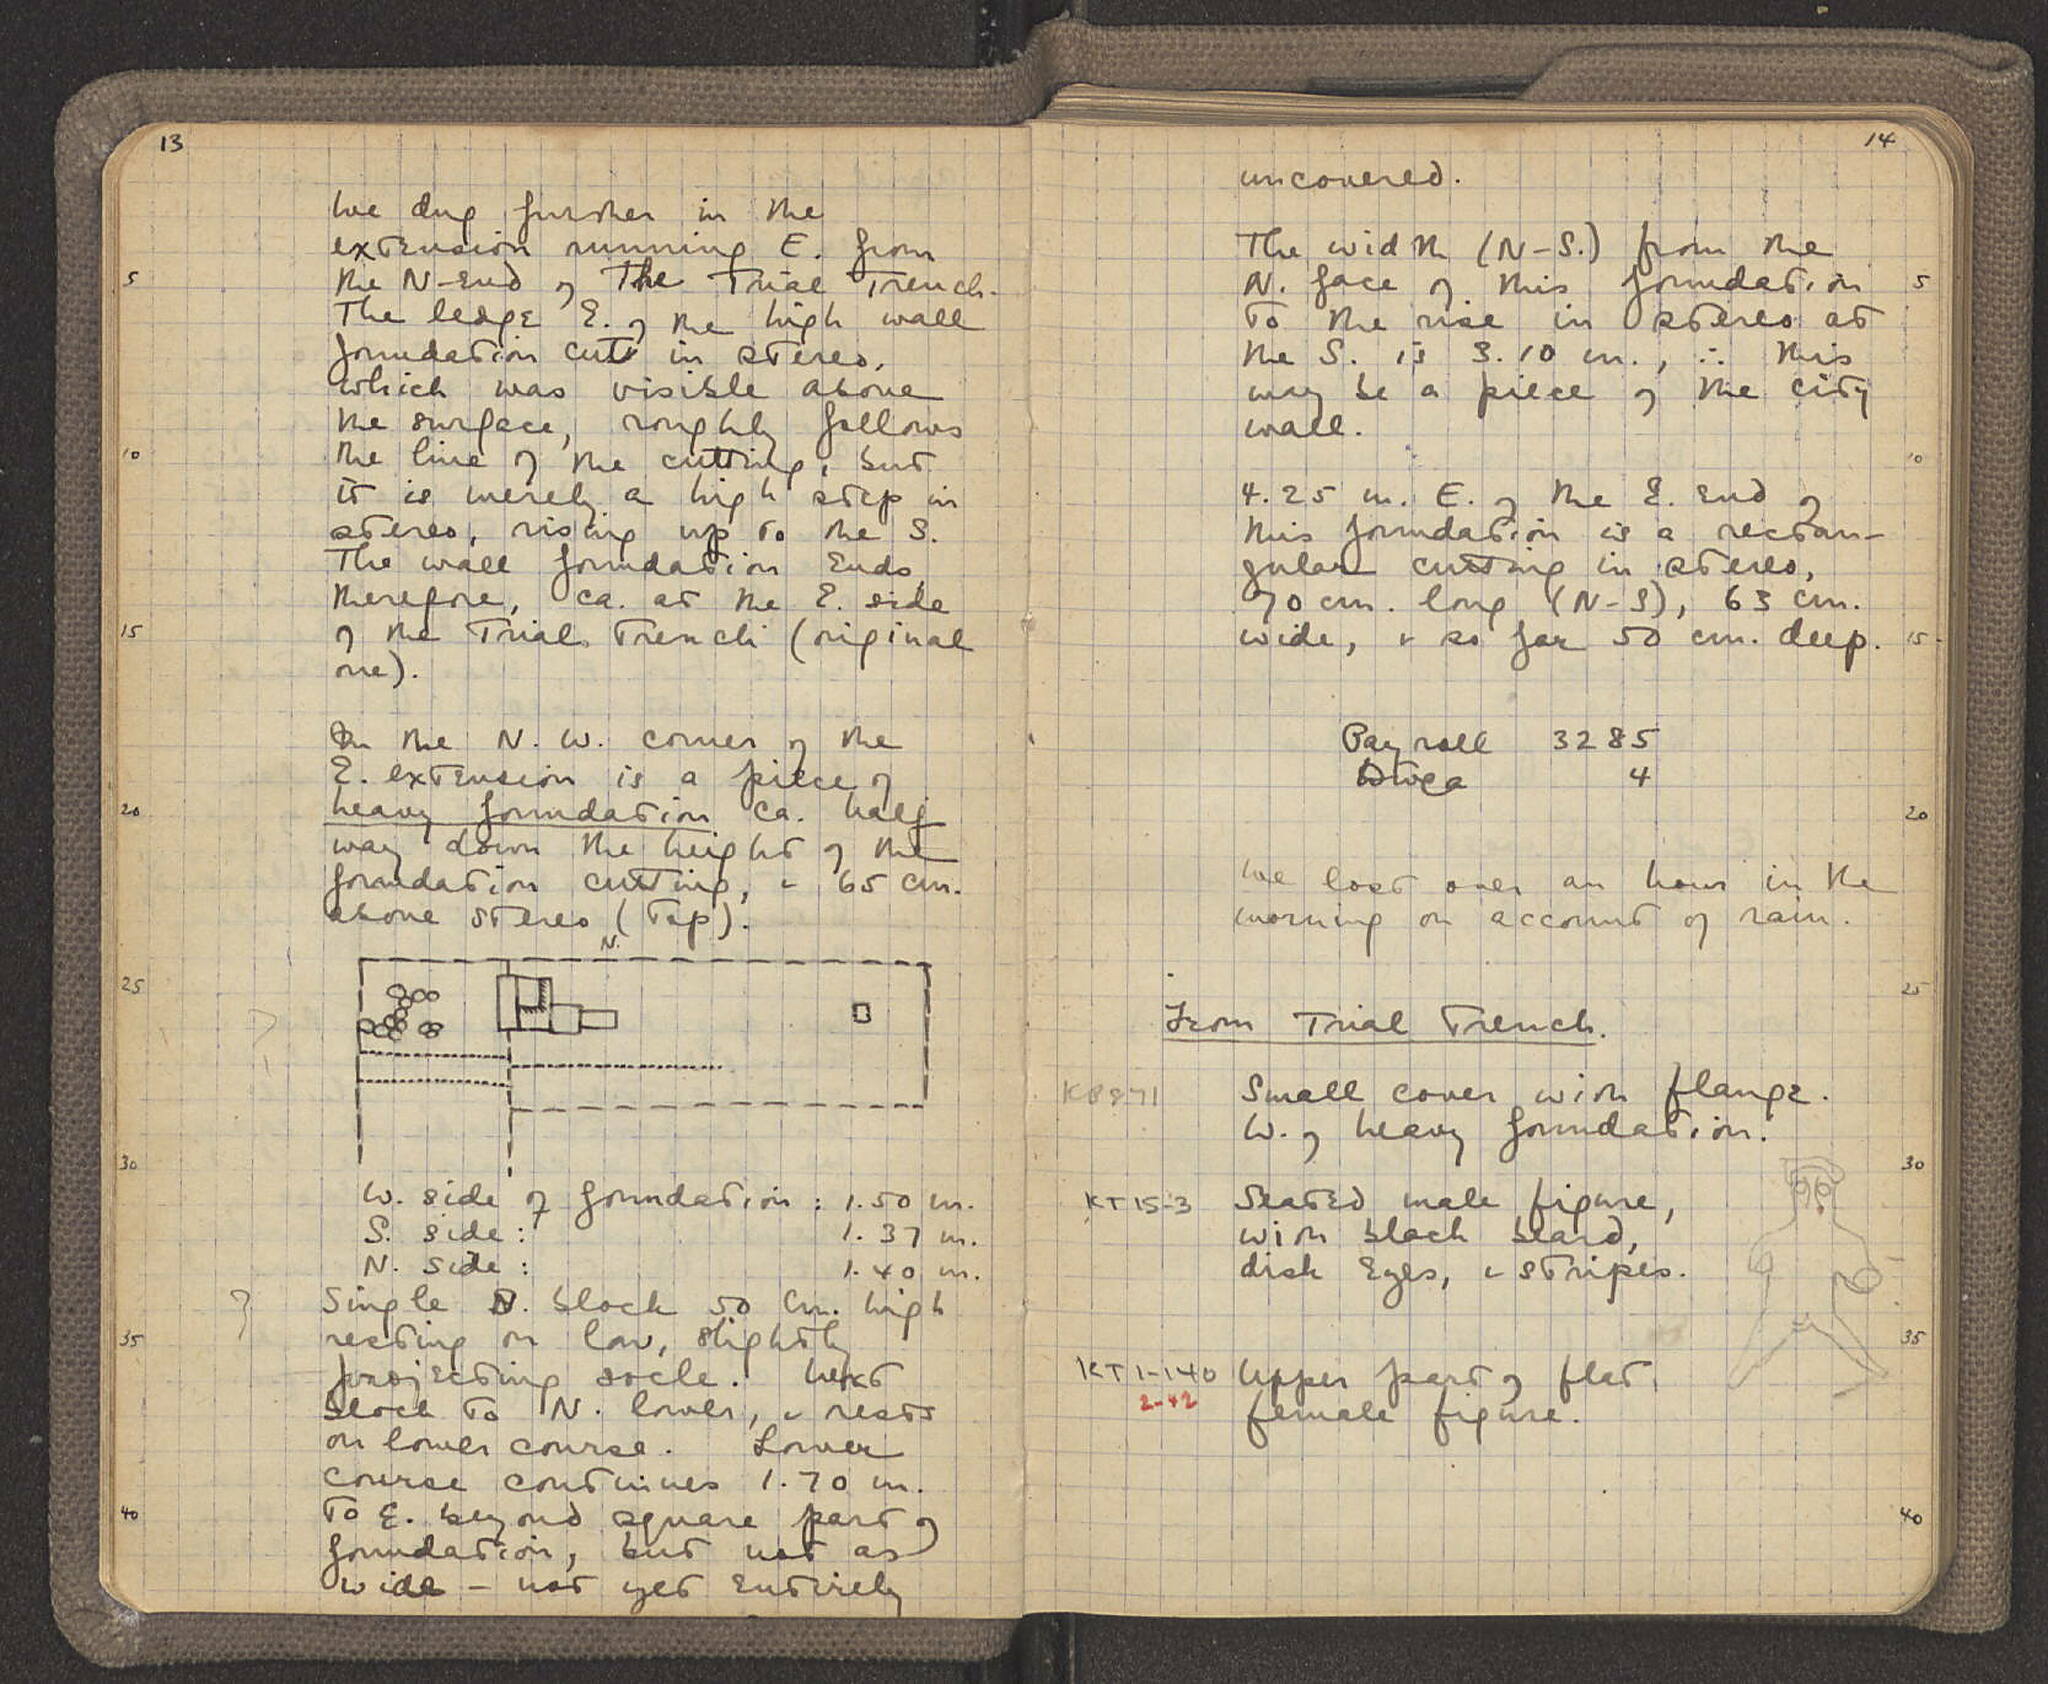 13
We dug further in the
extension running E. from
5
the N-End of The Trial Trench.
The ledge E. of the high wall
foundation cut in stereo,
which was visible above
the surface, roughly follows
10
the line of the cutting, but
it is merely a high step in
stereo, rising up to the S.
The wall foundation Ends,
therefore, ca. at the E. side
15
of the Trial Trench (original
one).
In the N. W. corner of the
E. extension is a piece of
20
heavy foundation ca. half
way down the height of the
foundation cutting, & 65 cm.
above stereo (Top).
N.
25
30
W. side of foundation: 1.50 m.
S. side: 1.37 m.
N. side: 1.40 m.
? Single N. block 50 cm. high
35
resting on low, slightly
projecting socle. Next
block to N. lower, & rests
on lower course. Lower
course continues 1.70 m.
40
to E. beyond square part of
foundation, but not as
wide – not yet Entirely
14
uncovered.
The width (N-S.) from the
N. face of this foundation 5
to the rise in stereo at
the S. is 3.10 m., ∴ this
may be a piece of the city
wall.
10
4.25 m. E. of the E. End of
this foundation is a rectan-
gular cutting in stereo,
70 cm. long (N-S), 63 cm.
wide, & so far 50 cm. deep. 15
Payroll 3285
4
20
We lost over an hour in the
morning on account of rain.
25
From Trial Trench.
KP871 Small cover with flange.
W. of heavy foundation.
30
KT15-3 Seated male figure,
with black beard,
disk Eyes, & stripes.
35
KT1-140 Upper part of flat
2-42 female figure.
40